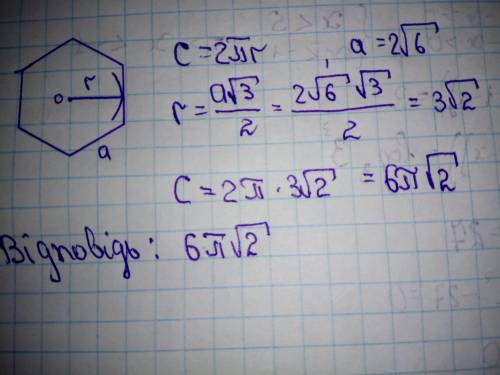 C = 2πr , a = 2√6
r = a√3/2 = 2√6 √3/2 = 3√2
C = 2π · 3√2 = 6π√2
Відповідь: 6π√2
r
o
a